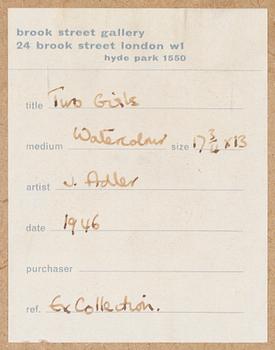 brook street gallery
24 brook street london w1
hyde park 1550
title Two Girls
medium Watercolour size 17 3/4 x 13
artist J. Adler
date 1946
purchaser
ref. Ex Collection.